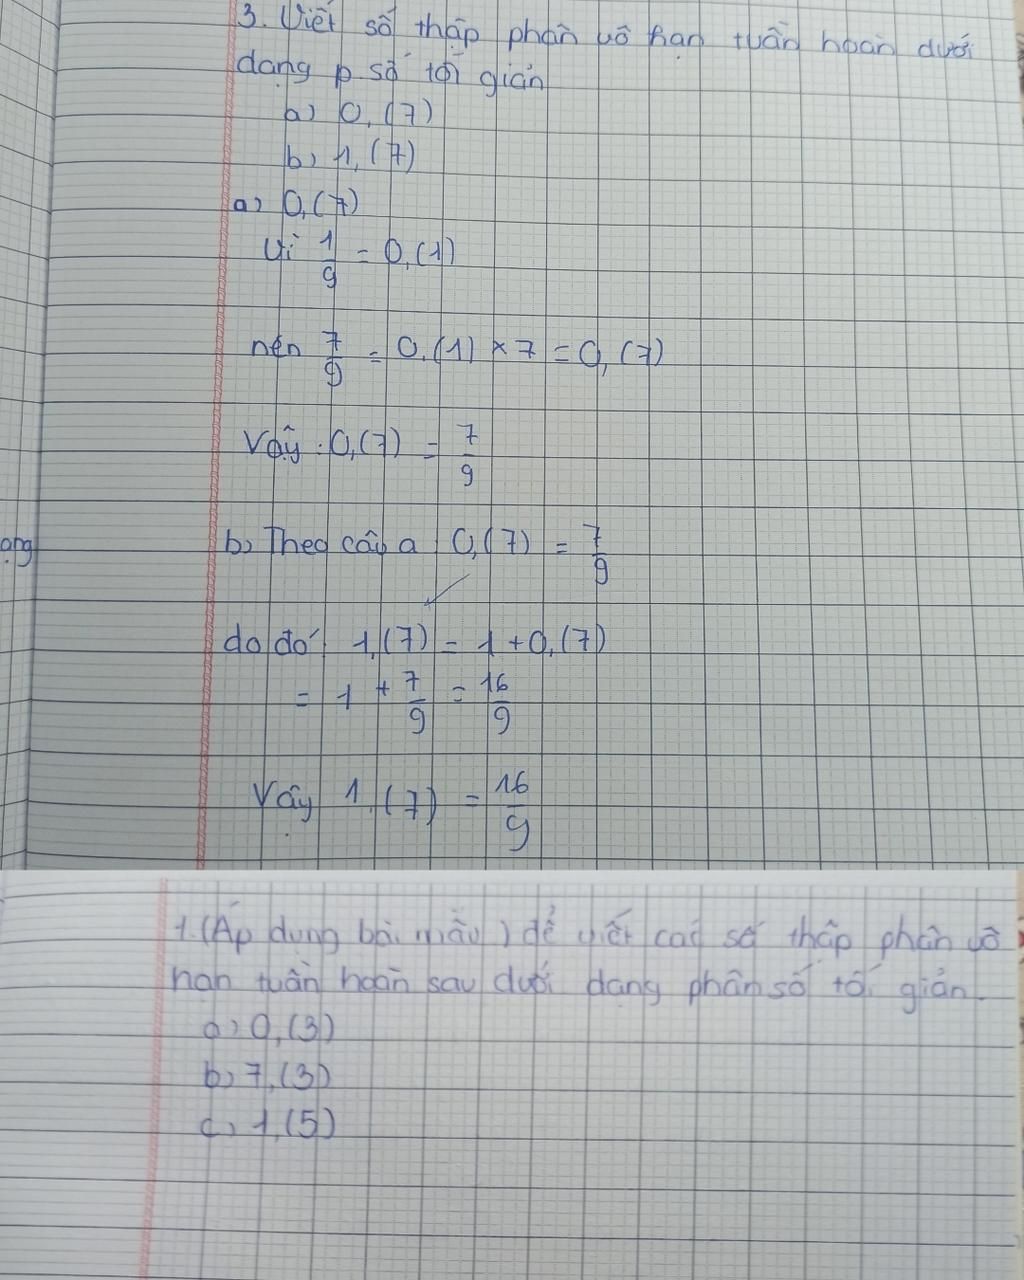 3. Viết số thập phân vô hạn tuần hoàn dưới
dạng p số tối giản
a) 0,(7)
b) 1,(7)
a) 0,(7)
Vì 1/9 = 0,(1)
nên 7/9 = 0,(1) × 7 = 0,(7)
Vậy : 0,(7) = 7/9
ang
b) Theo câu a 0,(7) = 7/9
do đó 1,(7) = 1 + 0,(7)
= 1 + 7/9 = 16/9
Vậy 1,(7) = 16/9
1. (Áp dụng bài mẫu) để viết các số thập phân vô
hạn tuần hoàn sau dưới dạng phân số tối giản.
a) 0,(3)
b) 7,(3)
c) 1,(5)